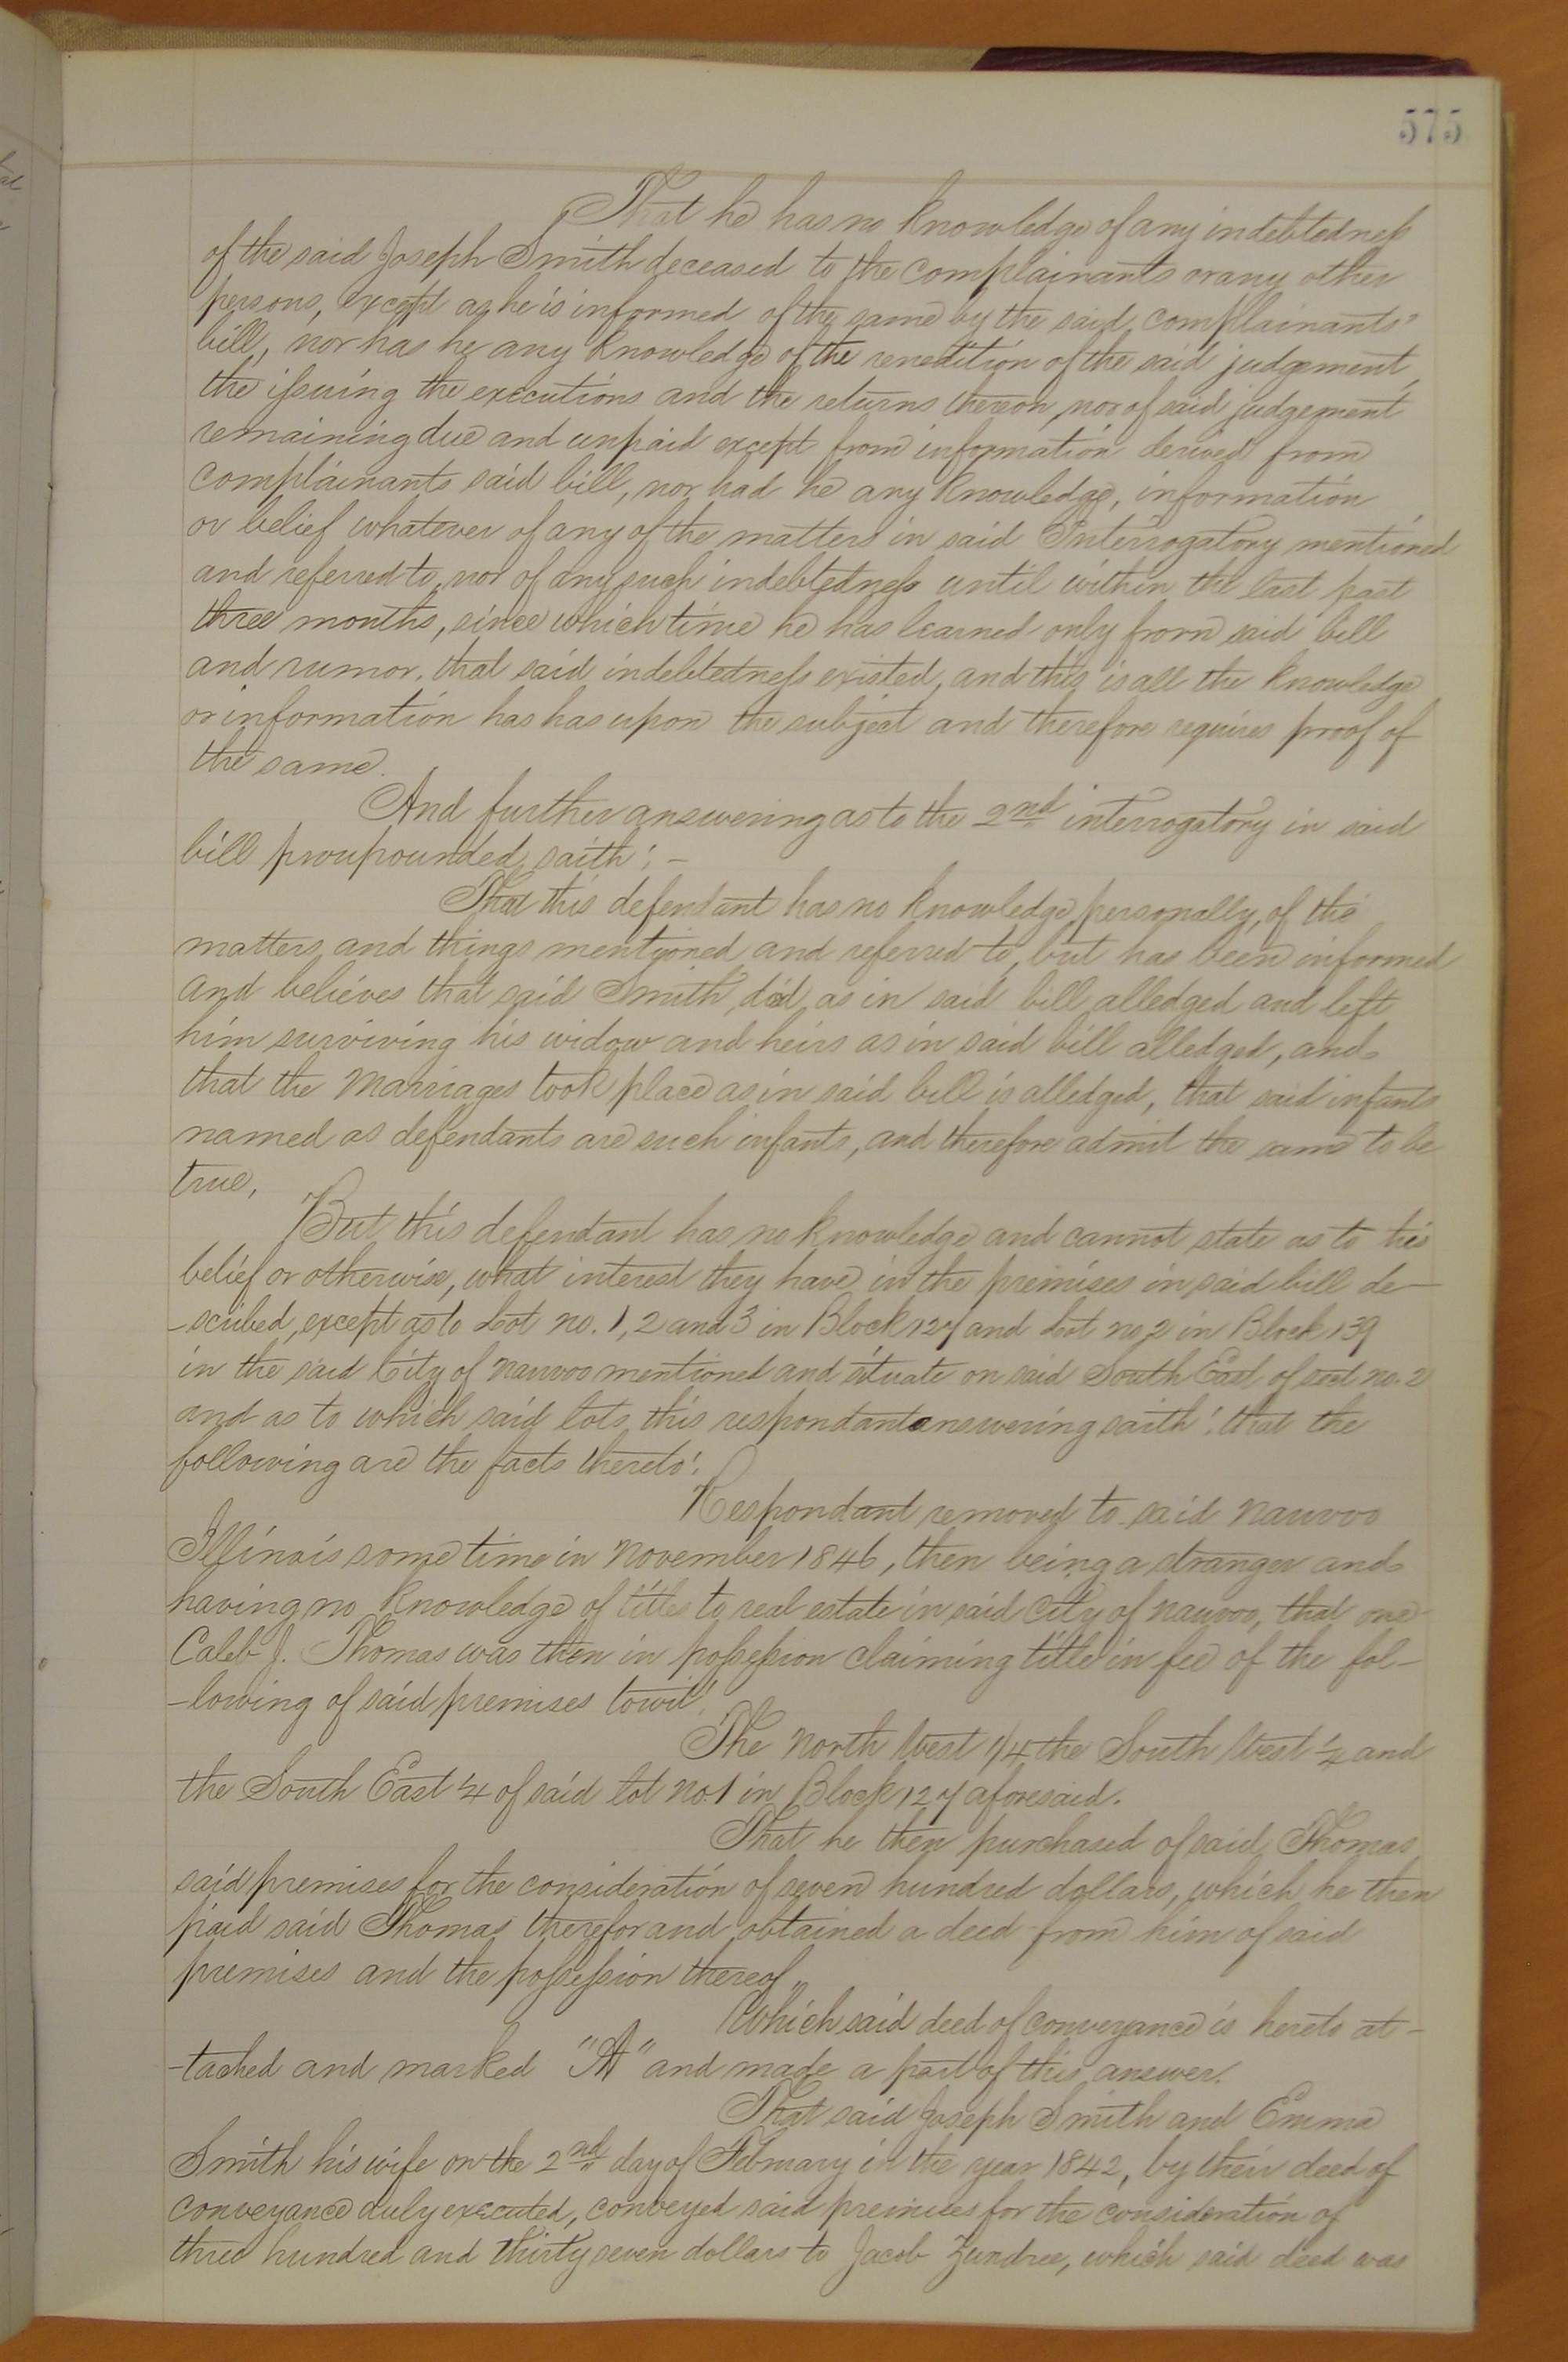 575
That he has no knowledge of any indebtedness
of the said Joseph Smith deceased to the complainants or any other
persons, except as he is informed of the same by the said complainants'
bill, nor has he any knowledge of the renedition of the said judgement,
the issuing the executions and the returns thereon, nor of said judgement
remaining due and unpaid except from information derived from
complainants said bill, nor had he any knowledge, information
or belief whatever of any of the matters in said Interrogatory mentioned
and referred to, nor of any such indebtedness until within the last past
three months, since which time he has learned only from said bill
and rumor, that said indebtedness existed, and this is all the knowledge
or information has has upon the subject and therefore requires proof of
the same.
And further answering as to the 2nd interrogatory in said
bill proupounded saith: -
That this defendant has no knowledge personally, of the
matters and things mentioned and referred to, but has been informed
and believes that said Smith, died as in said bill alledged and left
him surviving his widow and heirs as in said bill alledged, and
that the Marriages took place as in said bill is alledged, that said infants
named as defendants are such infants, and therefore admit the same to be
true.
But this defendant has no knowledge and cannot state as to his
belief or otherwise, what interest they have in the premises in said bill de-
-scribed, except as to Lot no. 1, 2 and 3 in Block 127 and Lot no 2 in Block 139
in the said City of Nauvoo mentioned and situate on said South East of said no. 2
and as to which said lots, this respondant answering saith: that the
following are the facts thereto:
Respondant removed to said Nauvoo
Illinois some time in November 1846, then being a stranger and
having no knowledge of titles to real estate in said City of Nauvoo, that one
Caleb J. Thomas was then in possession claiming title in fee of the fol-
-lowing of said premises towit:
The North West 1/4 the South West 1/4 and
the South East 1/4 of said lot No. 1 in Block 127 aforesaid.
That he then purchased of said Thomas
said premises for the consideration of seven hundred dollars, which he then
paid said Thomas therefor and obtained a deed from him of said
premises and the possession thereof,,
Which said deed of conveyance is hereto at-
-tached and marked "A" and made a part of this answer.
That said Joseph Smith and Emma
Smith his wife on the 2nd day of February in the year 1842, by their deed of
conveyance duly executed, conveyed said premises for the consideration of
three hundred and thirty seven dollars to Jacob Zundree, which said deed was